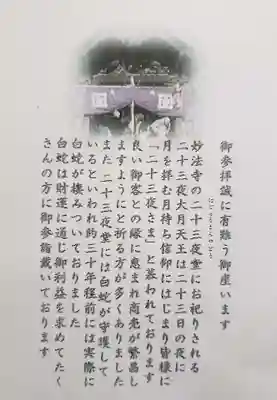 御参拝誠に有難う御座います
妙法寺の二十三夜堂にお祀りされる
二十三夜大月天王は二十三日の夜に
月を拝む月待ち信仰にはじまり皆様に
「二十三夜さま」と慕われております
良い御客との縁に恵まれ商売が繁昌し
ますようにと祈る方が多くありました
また 二十三夜堂には白蛇が守護して
いるといわれ約三十年程前には実際に
白蛇が棲みついておりました
白蛇は財運に通じ御利益を求めてたく
さんの方に御参詣戴いております